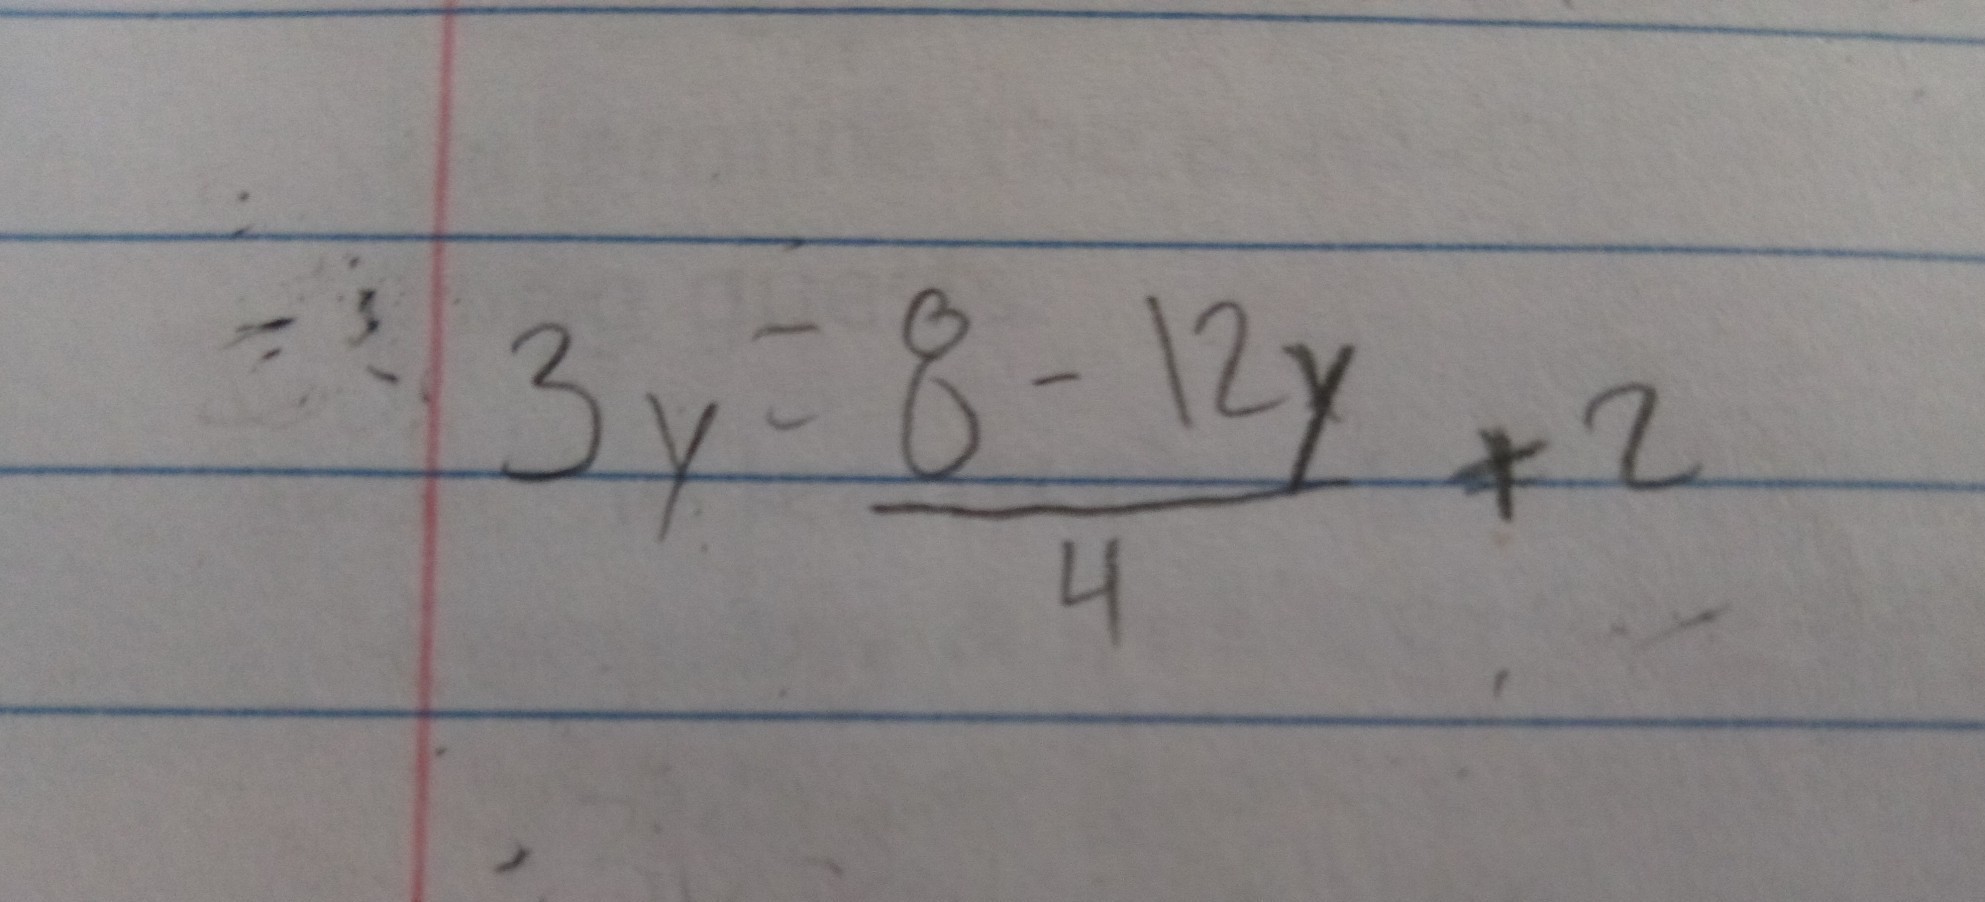 3y = 8 - 12y + 2
4